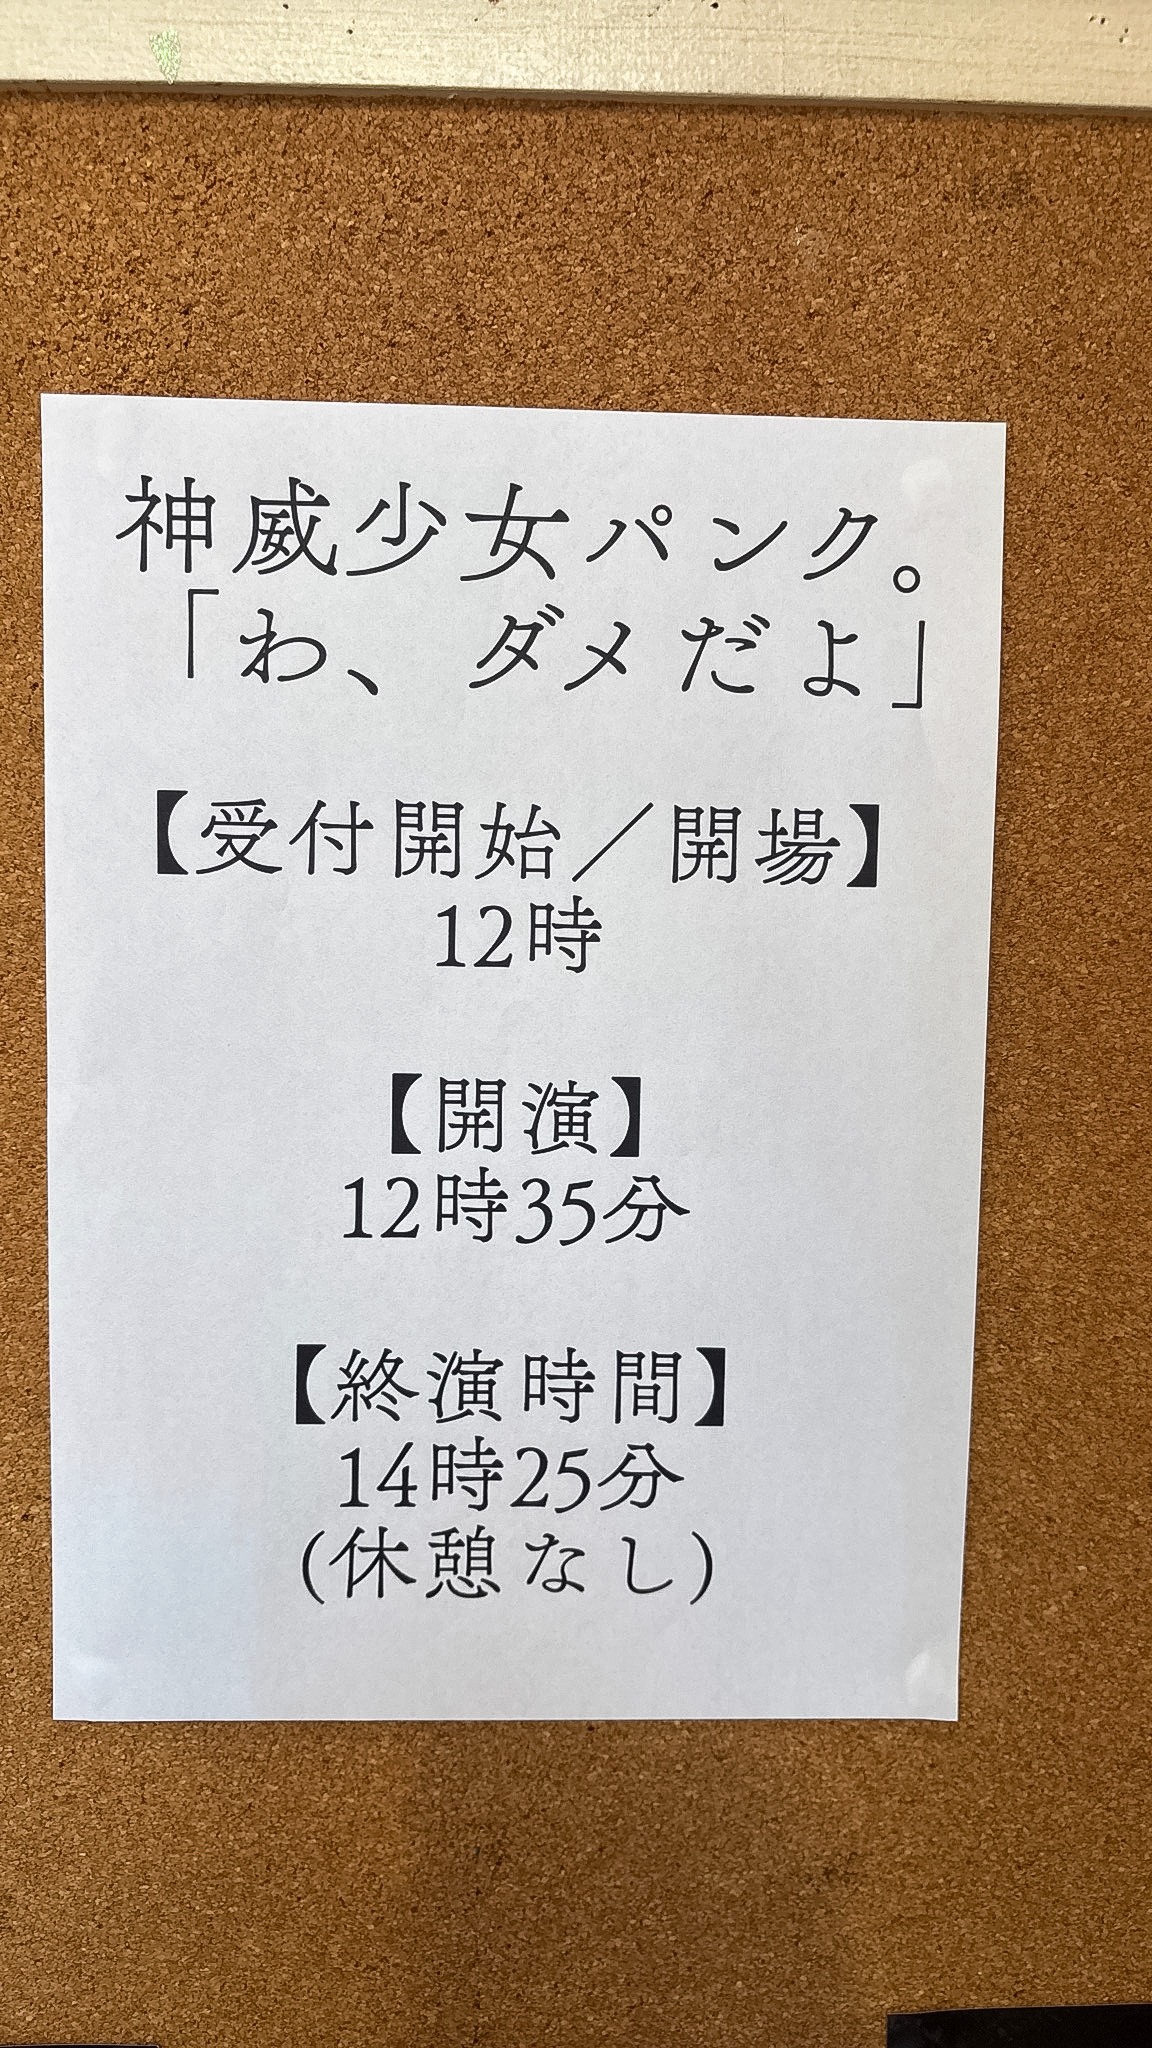 神威少女パンク。
「わ、ダメだよ」
【受付開始／開場】
12時
【開演】
12時35分
【終演時間】
14時25分
(休憩なし)